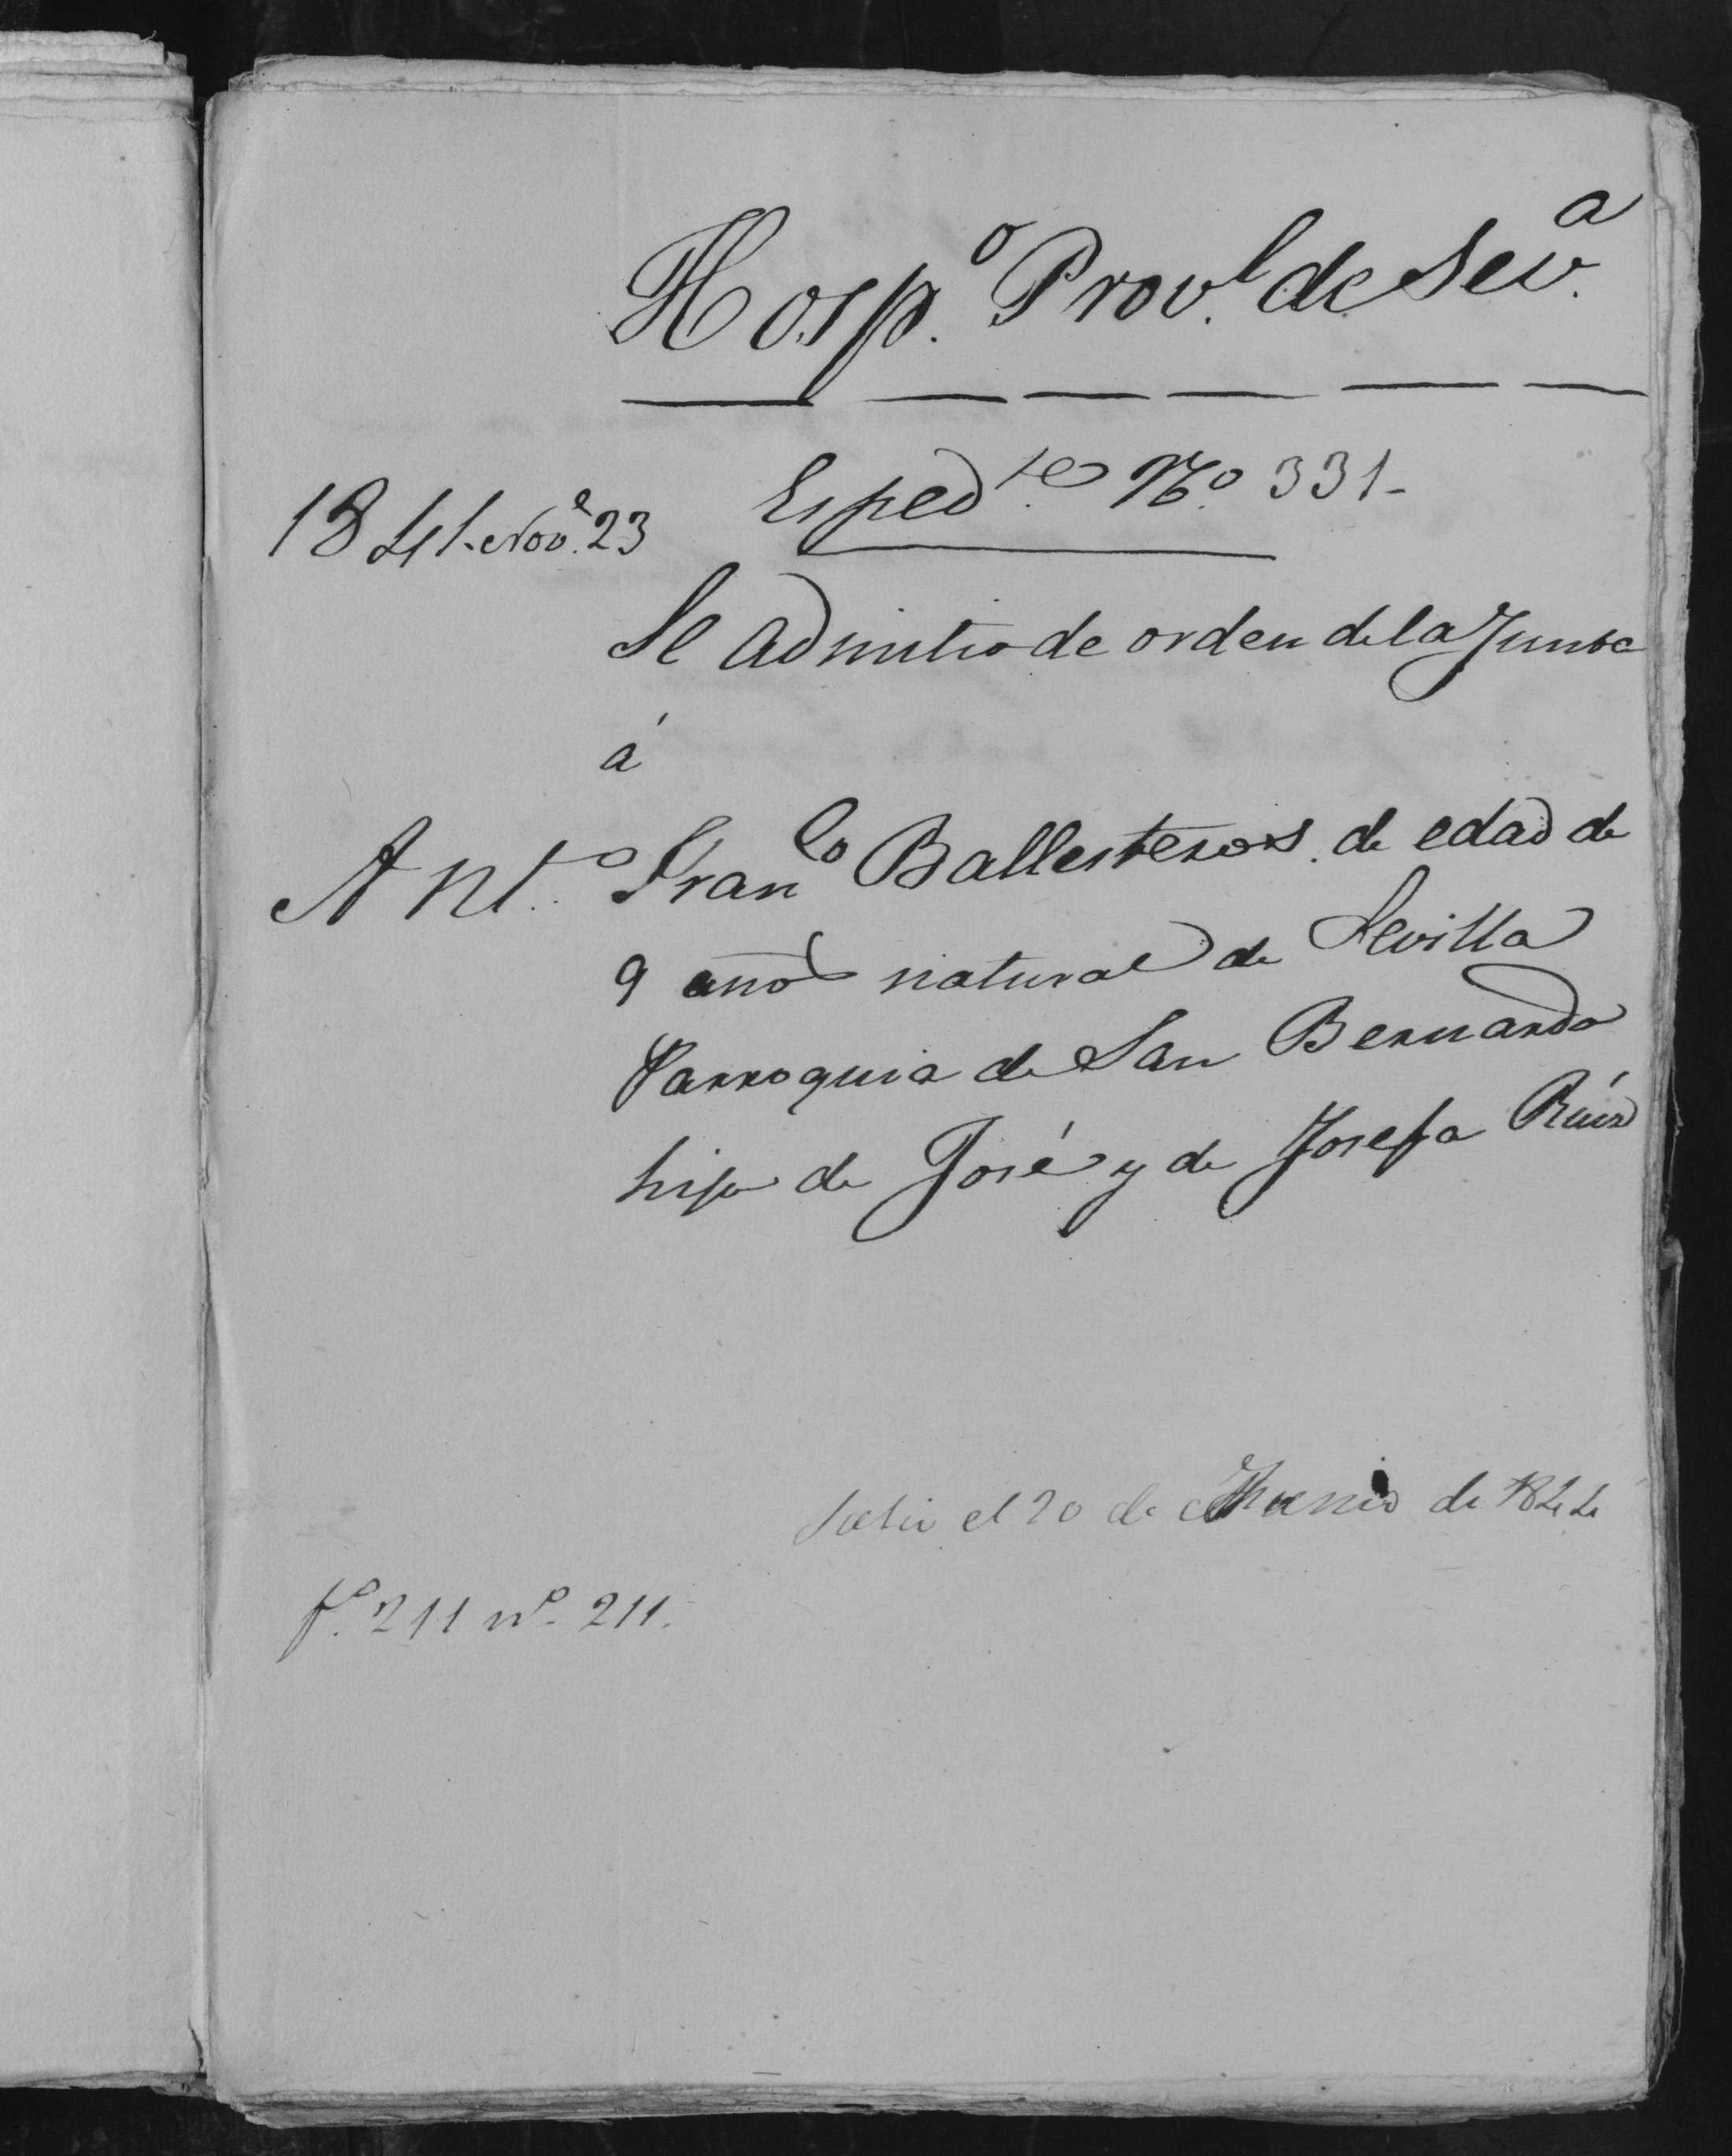 Hosp.º Prov.l de Sev.a
Esped.te Nº 331-
1841. Nov.e 23
Se admitio de orden de la Junta
á
Ant.º Fran.co Ballesteros de edad de
9 años natural de Sevilla
Parroquia de San Bernardo
hijo de José y de Josefa Ruíz
Salió el 20 de Junio de 1844
fº. 211 nº. 211.